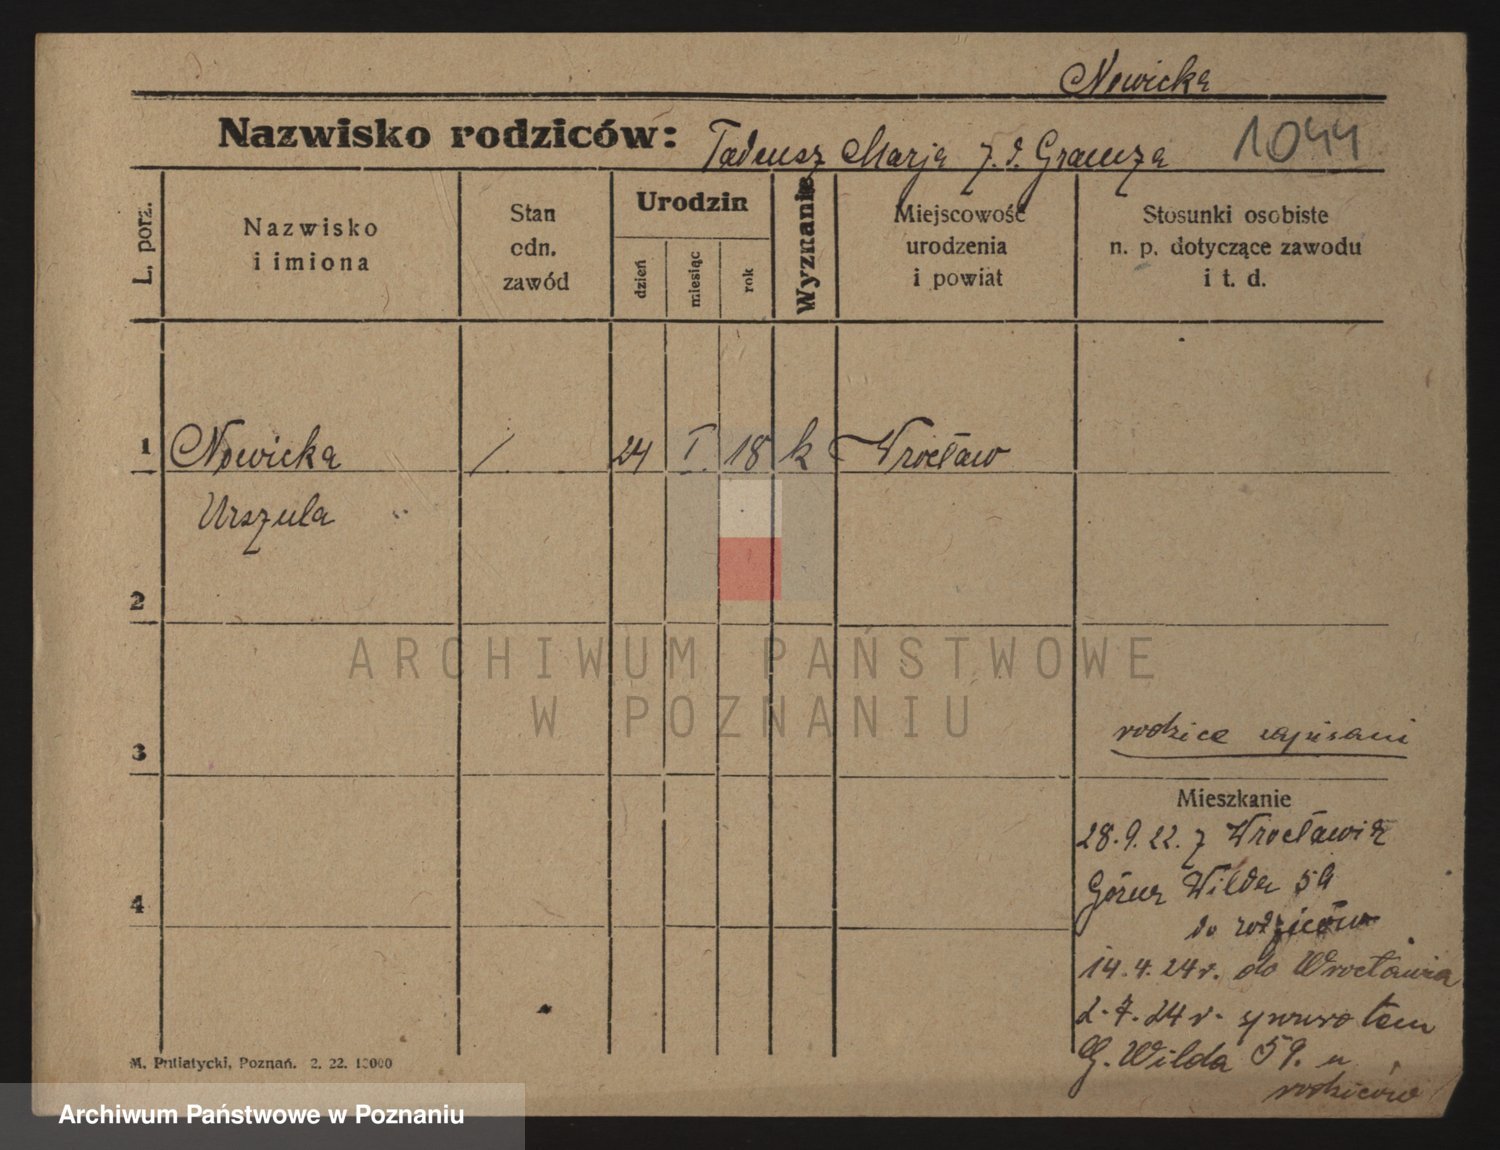 Nowicka
Nazwisko rodziców: Tadeusz Marja z. d. 1044
L. porz.
Nazwisko
i imiona
Stan
cdn.
zawód
Urodzin
dzień
miesiąc
rok
Wyznanie
Miejscowość
urodzenia
i powiat
Stosunki osobiste
n. p. dotyczące zawodu
i t. d.
1 Nowicka / 24 I. 18 k Wrocław
Urszula
2
ARCHIWUM PAŃSTWOWE
W POZNANIU
3
rodzice zapisani
Mieszkanie
28.9.22. z Wrocławia
Górna Wilda 59
4
do rodziców
14.4.24 r. do Wrocławia
2.7.24 r. spowrotem
G. Wilda 59. u
rodziców
M. Putiatycki, Poznań. 2. 22. 10000
Archiwum Państwowe w Poznaniu